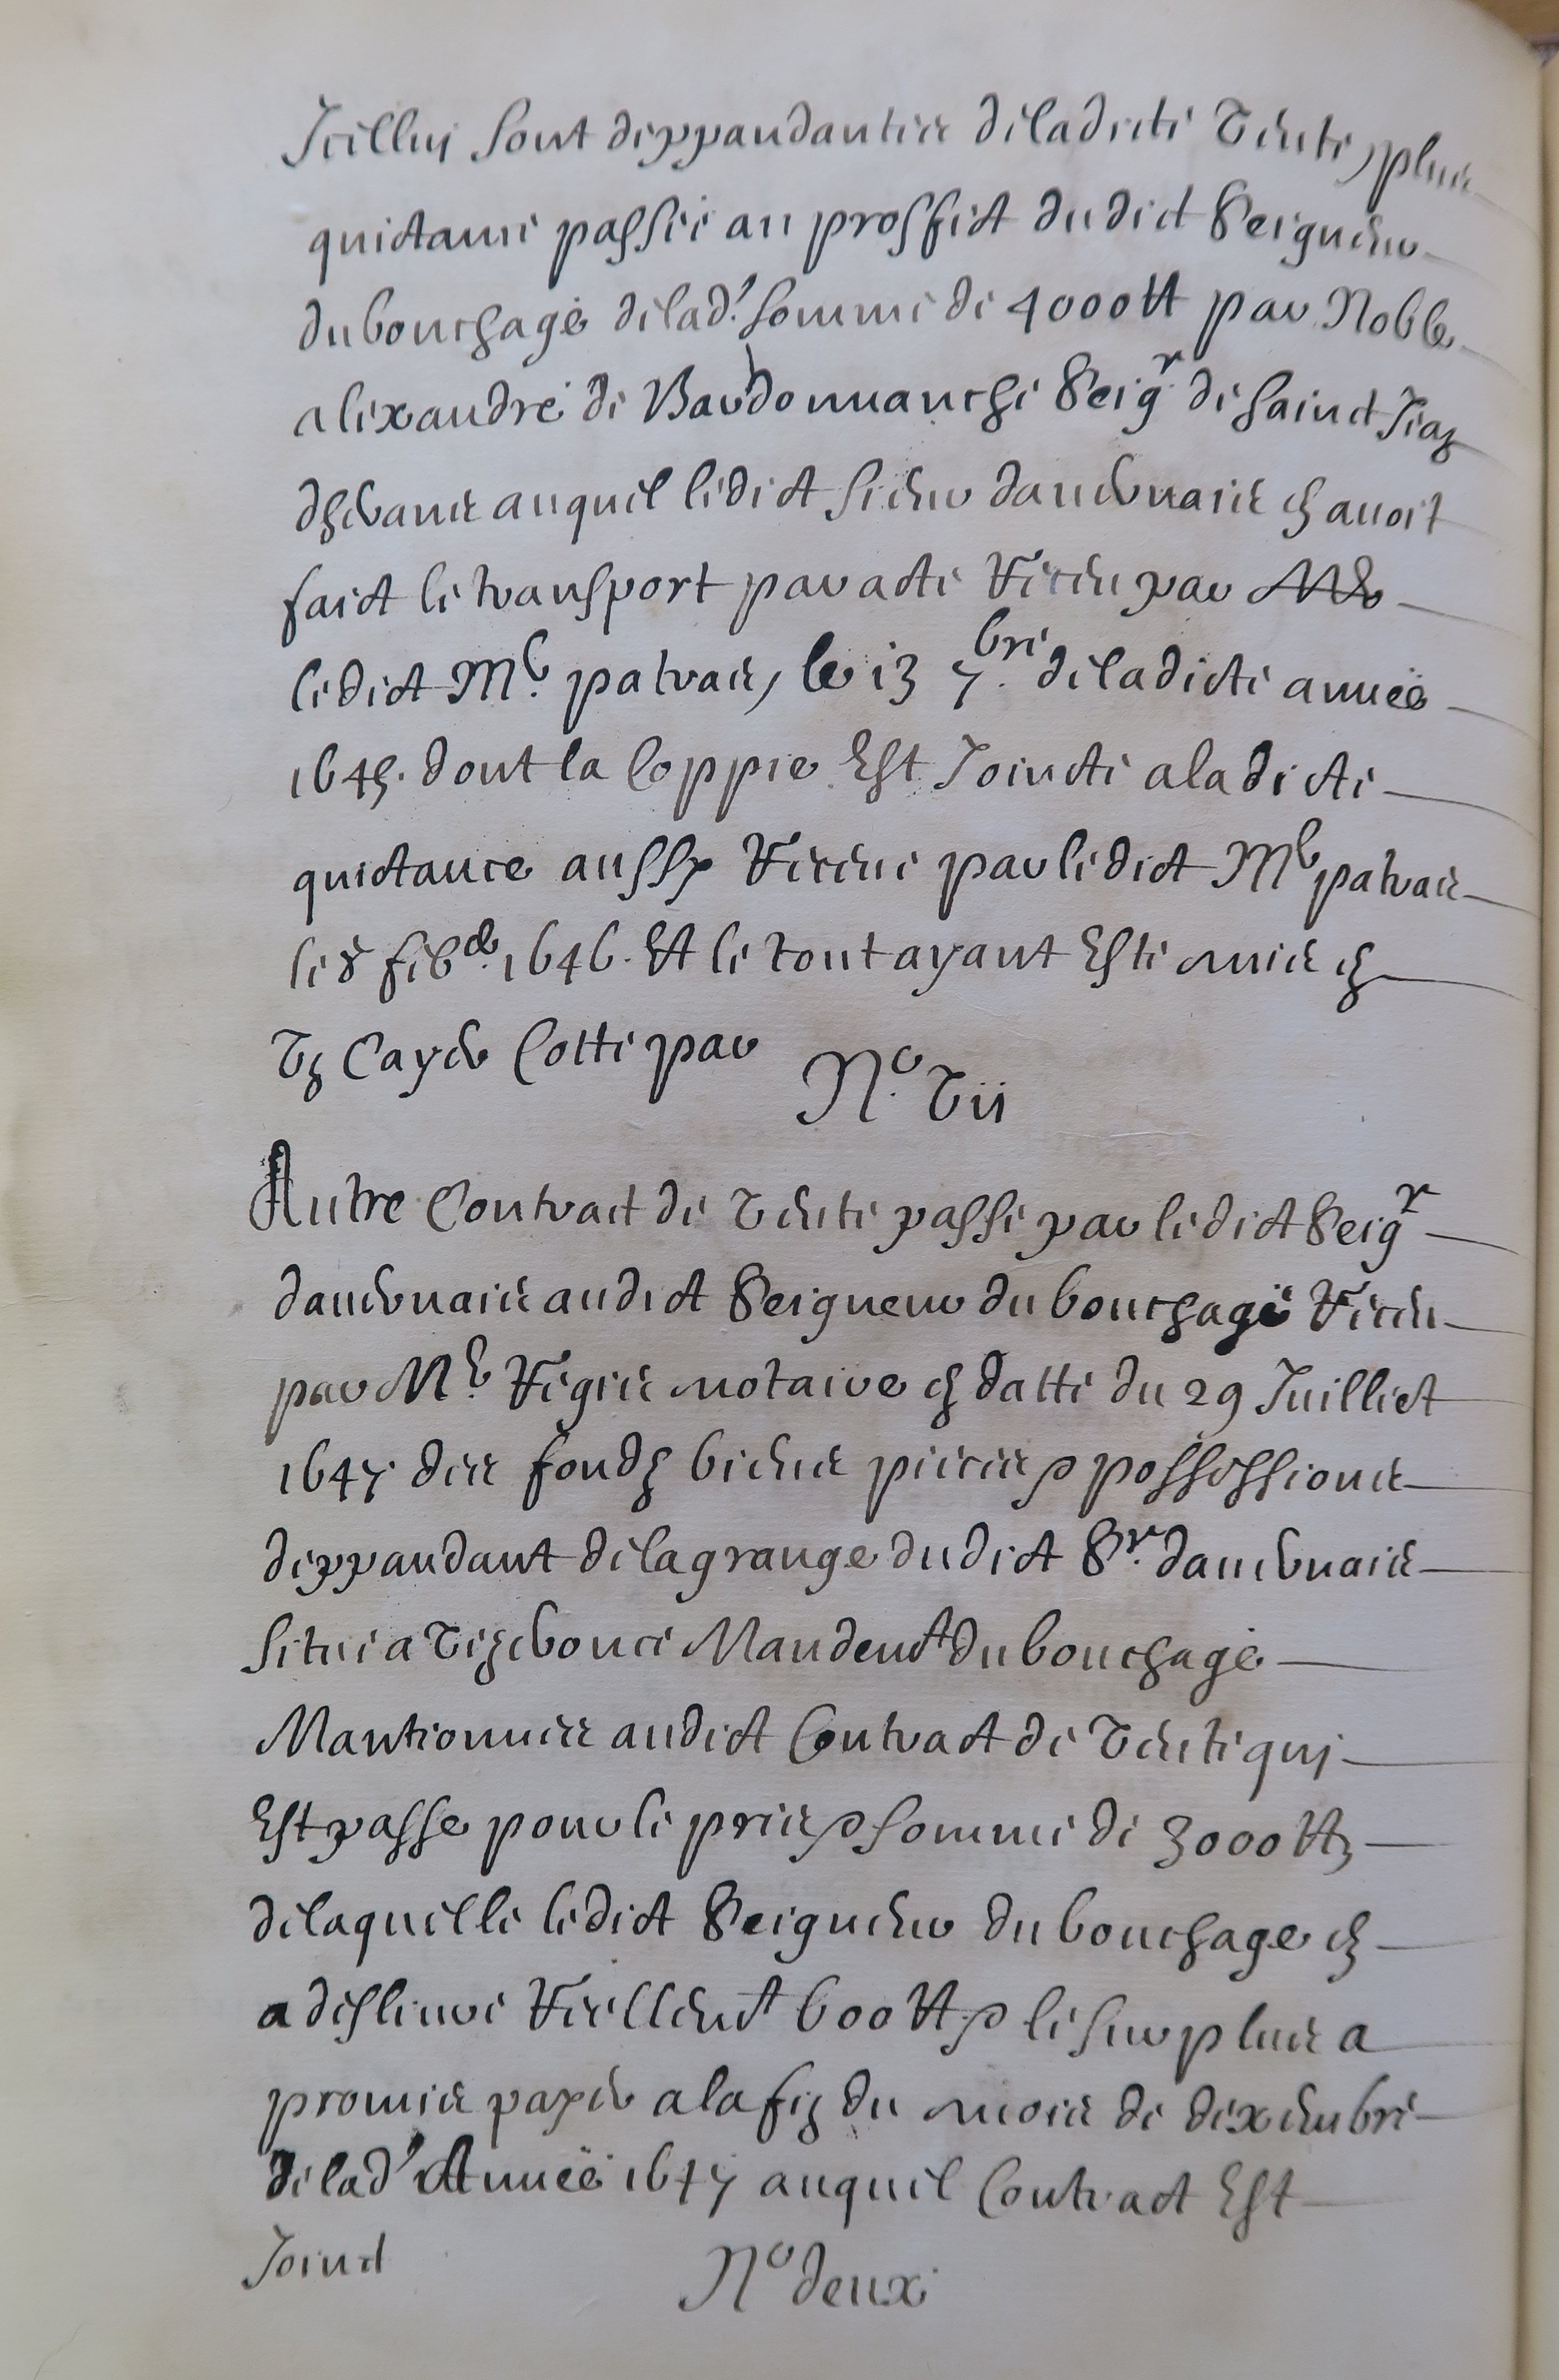 Icelluy sont deppandantes deladicte vente, plus
quictance passée au proffict dudict Seigneur
du bouchage delad.' somme de 4000 tt par Noble
alexandre de Bardonnanche Seigr de sainct Jean
dhérans auquel ledict sieur dauernais en auoit
faict le transport par acte Receu par
ledict Me. patras, le 13 7.bre deladicte année
1645. dont la Coppie Est Joincte a la dicte
quictance aussy Receue par ledict Me patras
le 8 feb. 1646. Et le tout ayant Esté mis en
Un Cayer Cotté par No. Un
Autre Contract de vente passé par ledict Seigr
dauernais audict Seigneur du bouchage Receu
par Me. Regis notaire en datte du 29 Juilliet
1647. des fondz biens pieces & possessions
deppandant de la grange dudict Sr. dauernais
situé a Mandent du bouchage
Mantionnés audict Contract de vente qui
Est passe pour le pris & somme de 3000 tt
de laquelle ledict Seigneur du bouchage en
a desliuré Reellent 600 tt & le surplus a
promis payer a la fin du mois de dexembre
de lad' Année 1647 auquel Contract Est
Joinct No deux